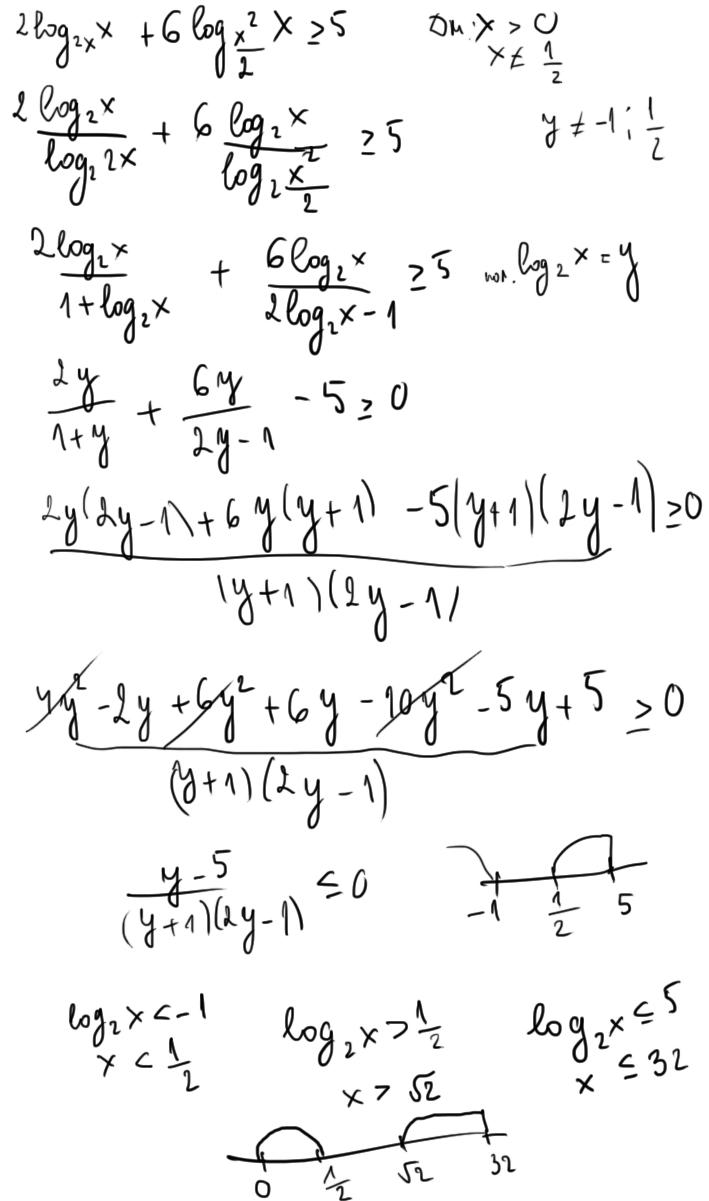 2log₂ₓx + 6log_(x²/2) x ≥ 5
Dm: x > 0
x ≠ 1/2
y ≠ -1; 1/2
2 log₂x / log₂ 2x + 6 log₂x / log₂ x²/2 ≥ 5
2log₂x / 1+log₂x + 6log₂x / 2log₂x - 1 ≥ 5 log₂x = y
2y / 1+y + 6y / 2y-1 - 5 ≥ 0
2y(2y-1)+6y(y+1) -5(y+1)(2y-1) ≥ 0
(y+1)(2y-1)
4y² -2y +6y² +6y -10y² -5y+5 ≥ 0
(y+1)(2y-1)
y-5 / (y+1)(2y-1) ≤ 0
-1 1/2 5
log₂x < -1 log₂x > 1/2 log₂x ≤ 5
x < 1/2 x > √2 x ≤ 32
0 1/2 √2 32